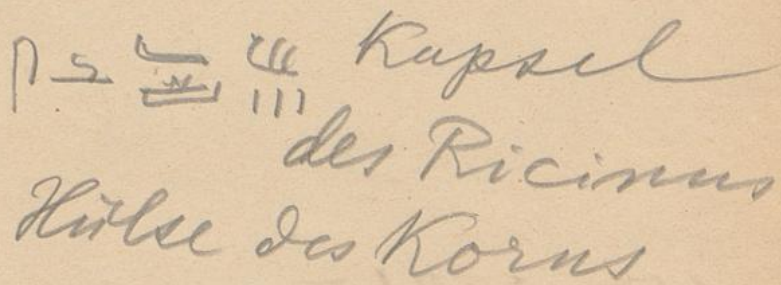 Kapsel
des Ricinus
Hülse des Korns